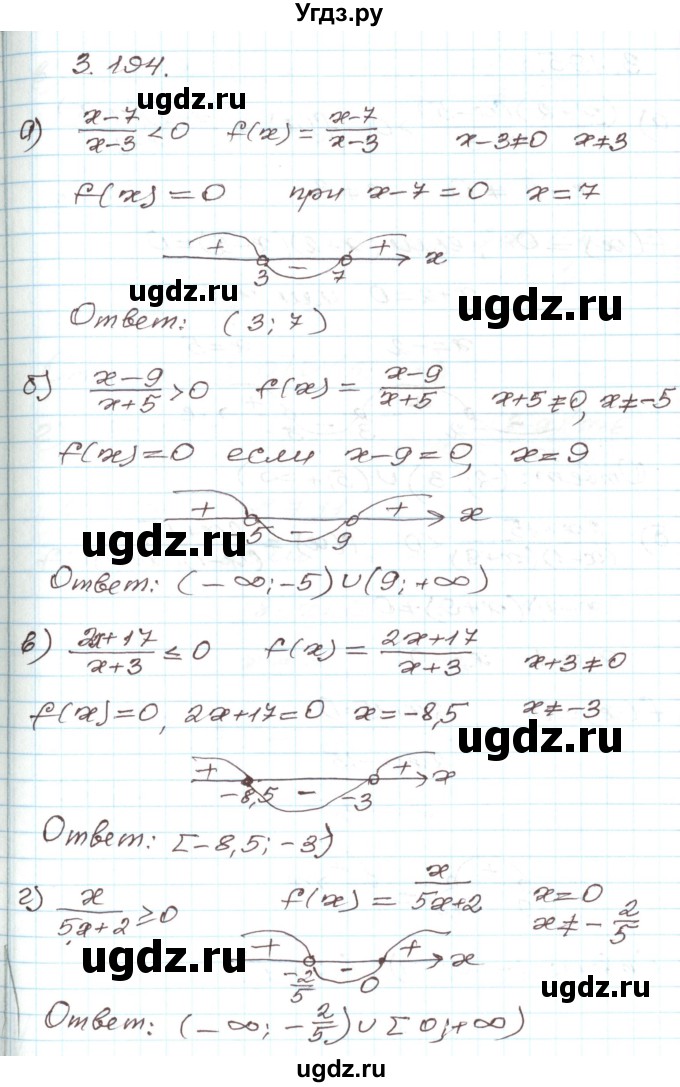 Угдз.ру
3. 194.
ugdz.ru
а) x-7/x-3 < 0 f(x) = x-7/x-3 x-3≠0 x≠3
f(x) = 0 при x-7=0 x=7
+ - + x
3 7
ugdz.ru
ugdz.ru
Ответ: (3; 7)
б) x-9/x+5 > 0 f(x) = x-9/x+5 x+5≠0, x≠-5
f(x)=0 если x-9=0, x=9
+ - + x
5 9
ugdz.ru
Ответ: (-∞; -5)∪(9; +∞)
в) 2x+17/x+3 ≤ 0 f(x) = 2x+17/x+3 x+3≠0
f(x)=0, 2x+17=0 x=-8,5 x≠-3
ugdz.ru
+ - + x
-8,5 -3
Ответ: [-8,5; -3)
г) x/5x+2 ≥ 0 f(x) = x/5x+2 x=0
x≠-2/5
ugdz.ru
+ - + x
-2/5 0
Ответ: (-∞; -2/5)∪[0; +∞)
ugdz.ru
ugdz.ru